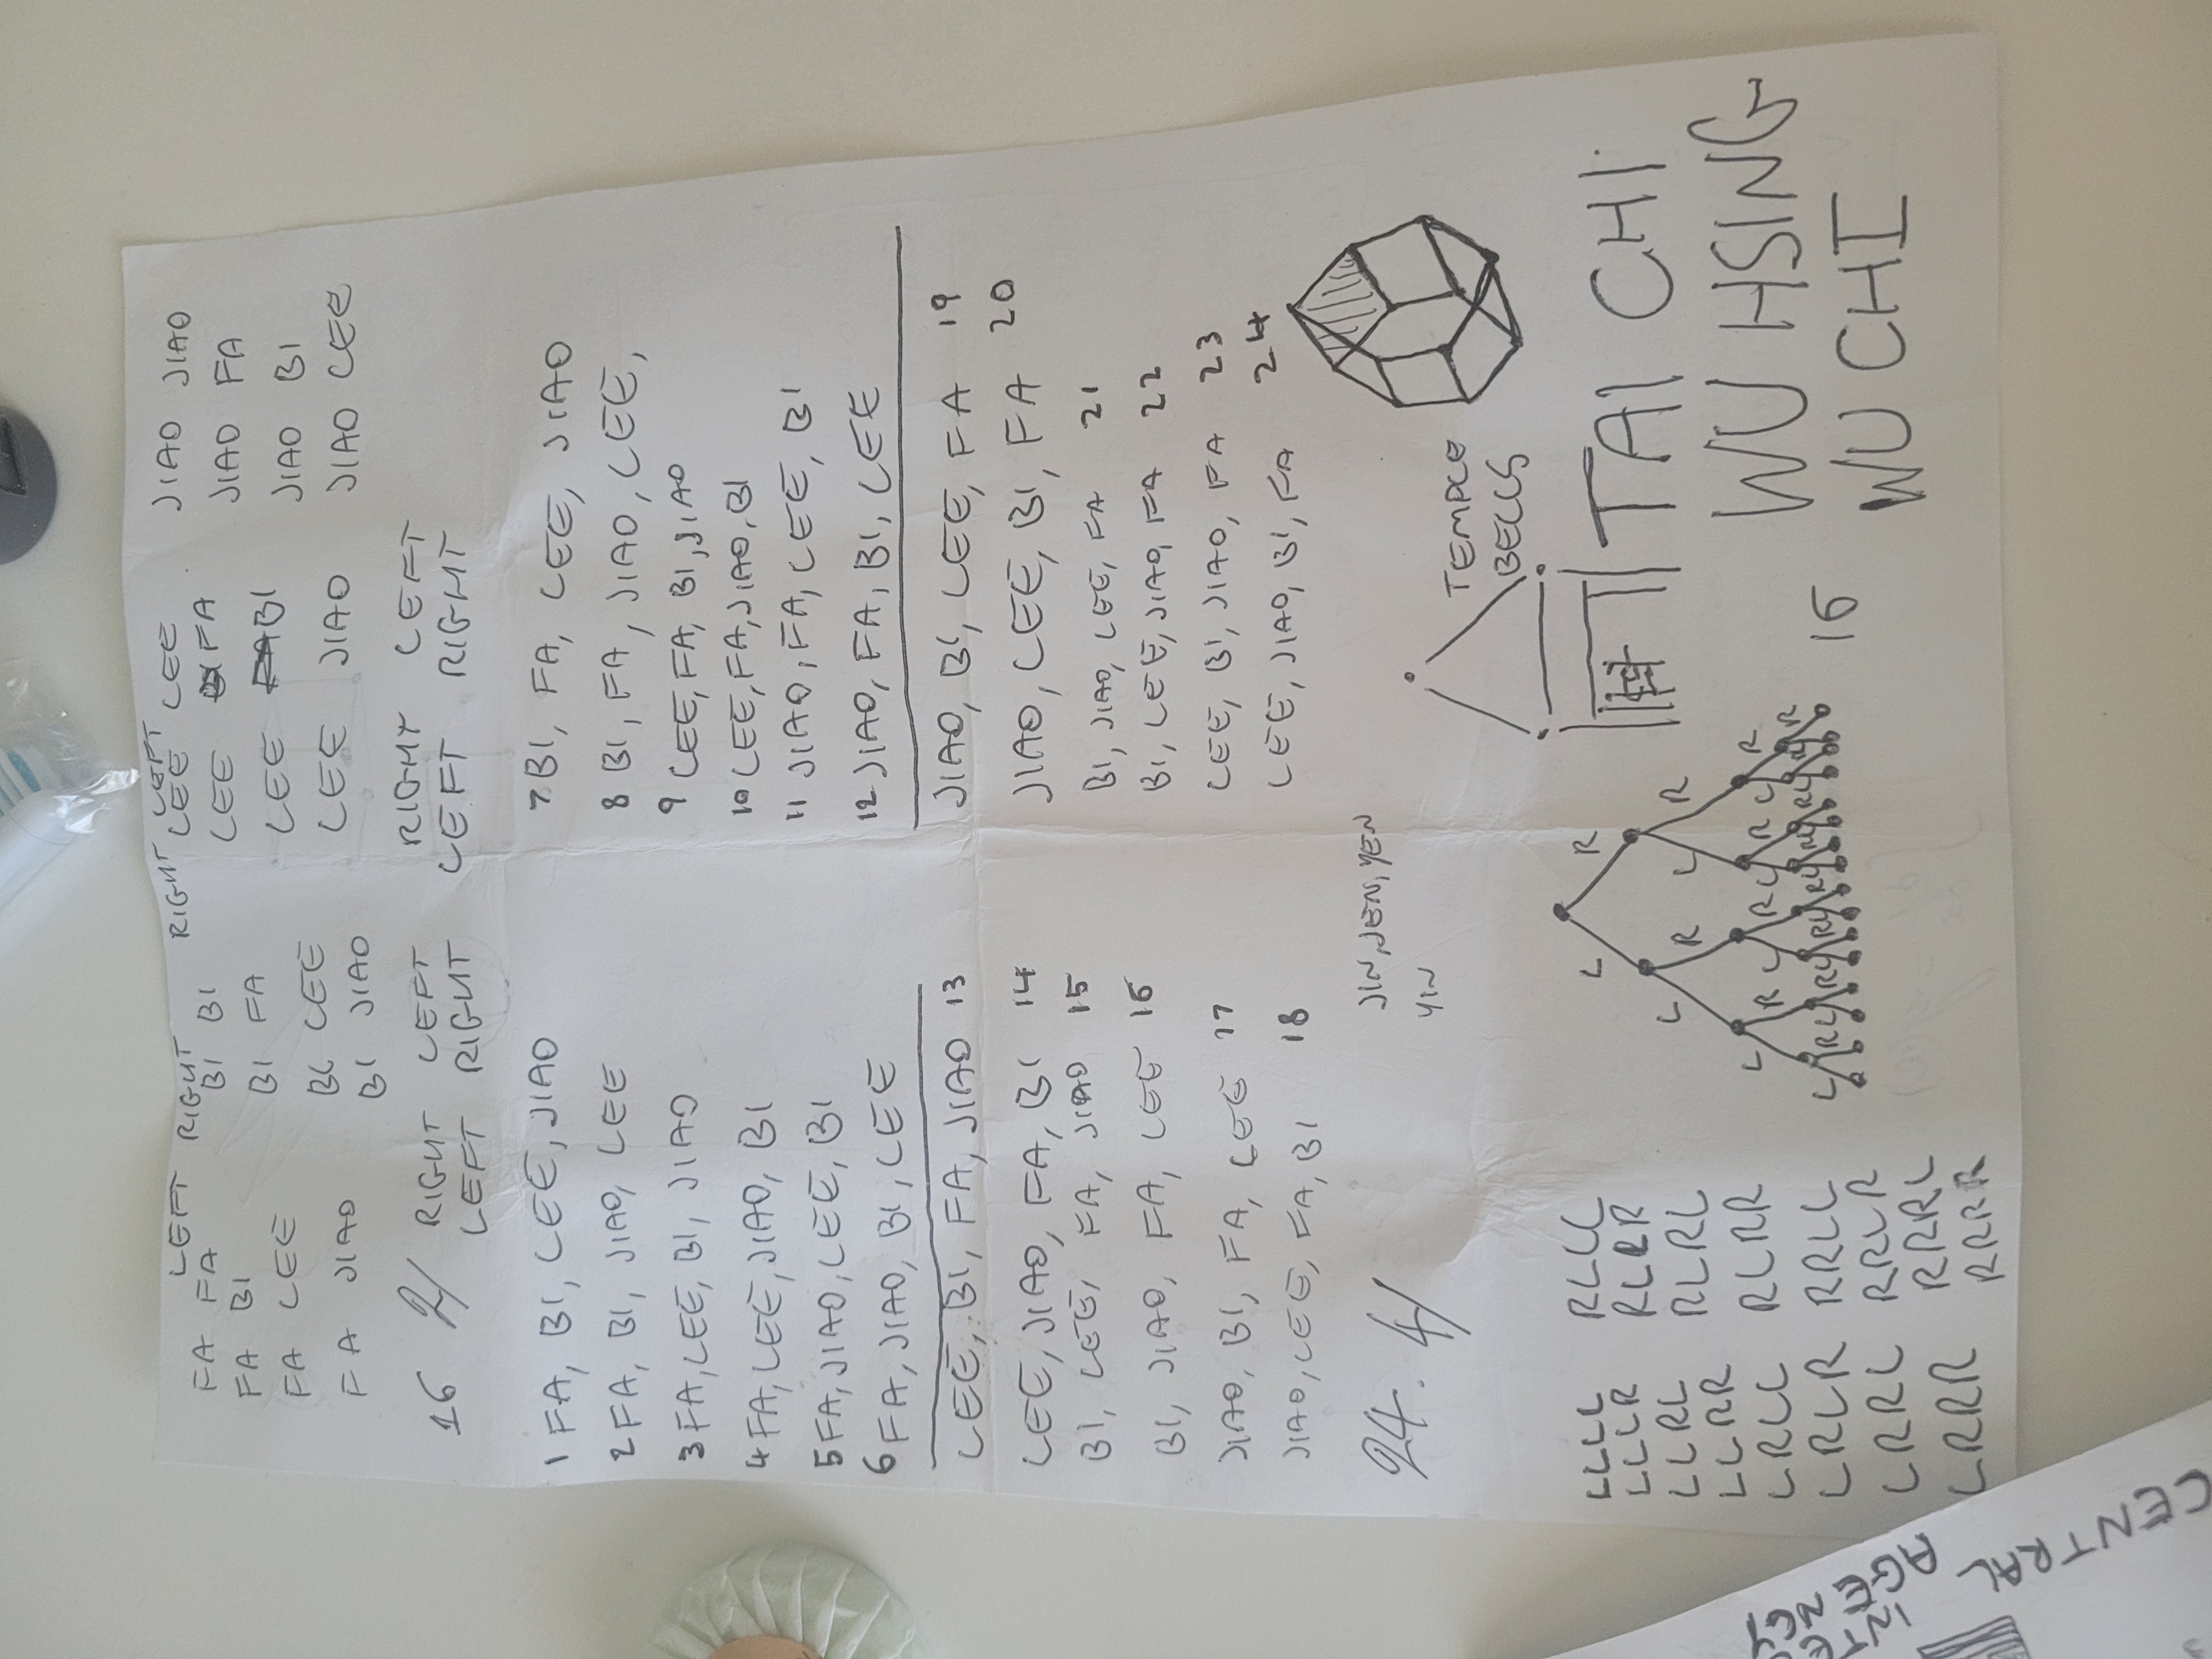 LEFT RIGHT RIGHT LEFT
FA FA BI BI LEE LEE JIAO JIAO
FA BI BI FA LEE FA JIAO FA
FA LEE BI LEE LEE BI JIAO BI
FA JIAO BI JIAO LEE JIAO JIAO LEE
16 2/ RIGHT LEFT RIGHT LEFT
LEFT RIGHT LEFT RIGHT
1 FA, BI, LEE, JIAO
2 FA, BI, JIAO, LEE
3 FA, LEE, BI, JIAO
4 FA, LEE, JIAO, BI
5 FA, JIAO, LEE, BI
6 FA, JIAO, BI, LEE
7 BI, FA, LEE, JIAO
8 BI, FA, JIAO, LEE,
9 LEE, FA, BI, JIAO
10 LEE, FA, JIAO, BI
11 JIAO, FA, LEE, BI
12 JIAO, FA, BI, LEE
LEE, BI, FA, JIAO 13
LEE, JIAO, FA, BI 14
BI, LEE, FA, JIAO 15
BI, JIAO, FA, LEE 16
JIAO, BI, FA, LEE 17
JIAO, LEE, FA, BI 18
JIAO, BI, LEE, FA 19
JIAO, LEE, BI, FA 20
BI, JIAO, LEE, FA 21
BI, LEE, JIAO, FA 22
LEE, BI, JIAO, FA 23
LEE, JIAO, BI, FA 24
24. 4/
JIN, JEN, YEN
YIN
TEMPLE
BELLS
LLLL RLLL
LLLR RLLR
LLRL RLRL
LLRR RLRR
LRLL RRLL
LRLR RRLR
LRRL RRRL
LRRR RRRR
L R
L R L R
L R L R L R L R
L R L R L R L R L R L R L R
16
TAI CHI
WU HSING
WU CHI
CENTRAL AGENCY